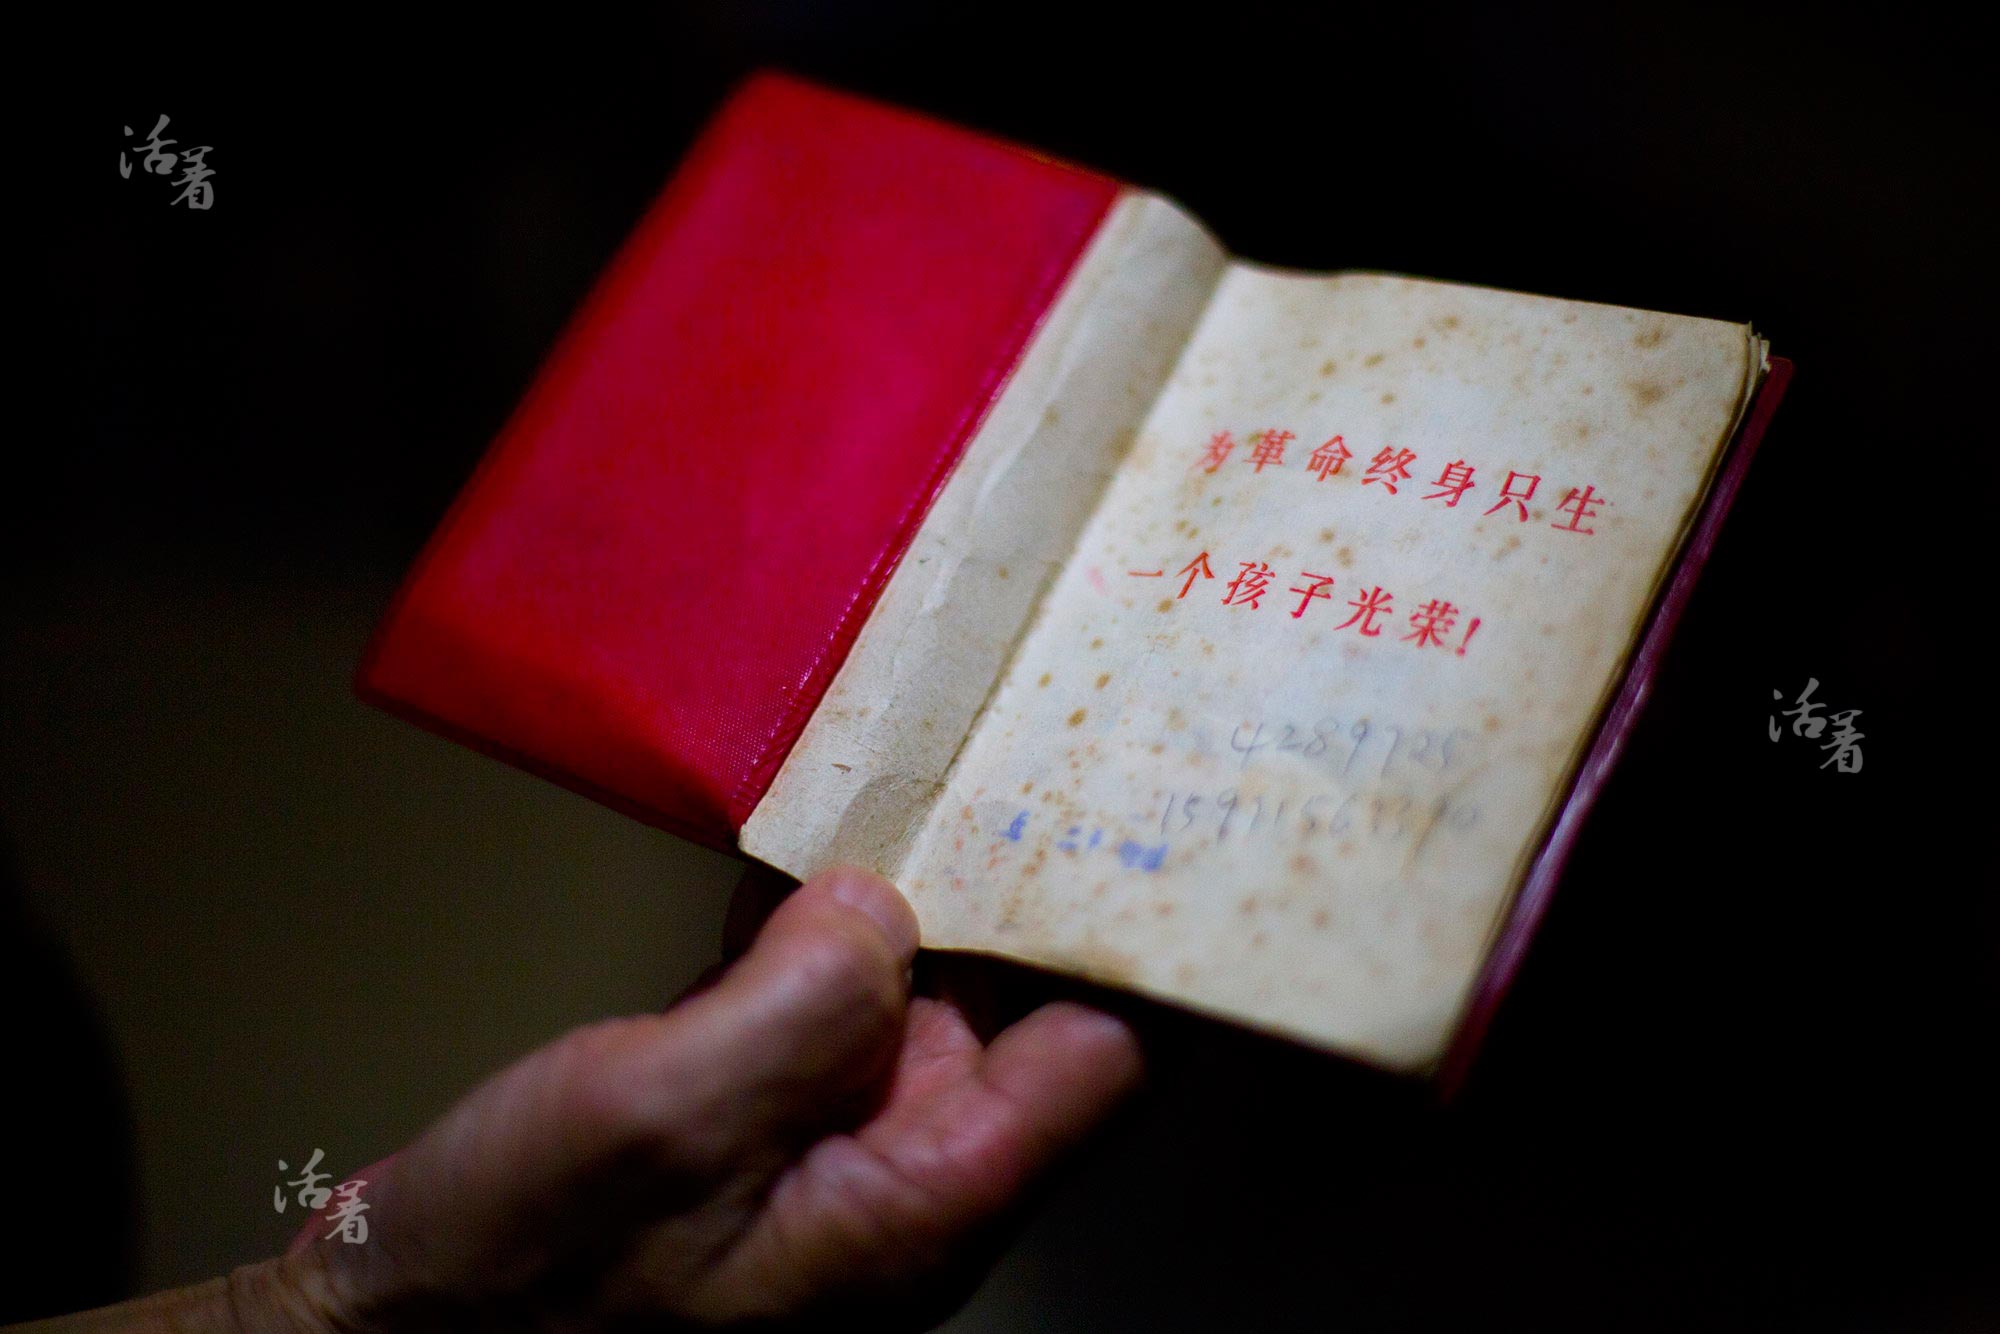 活着
为革命终身只生
一个孩子光荣!
4289725
活着
活着